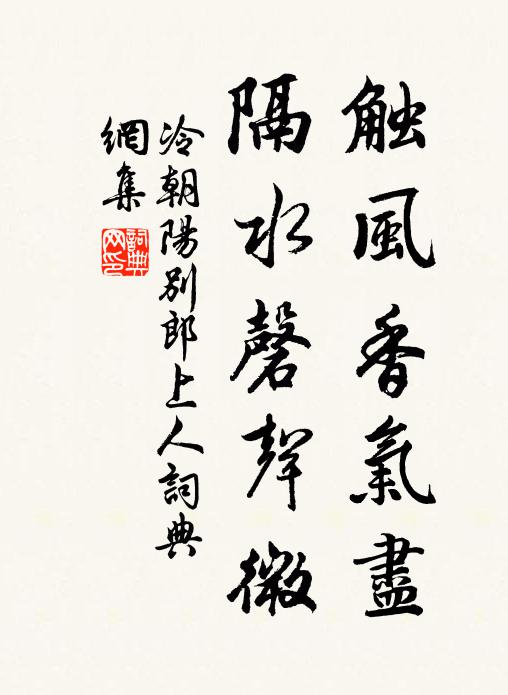 触風香氣盡
隔水磬聲微
冷朝陽別郎上人詞典
網集
詞典
网印